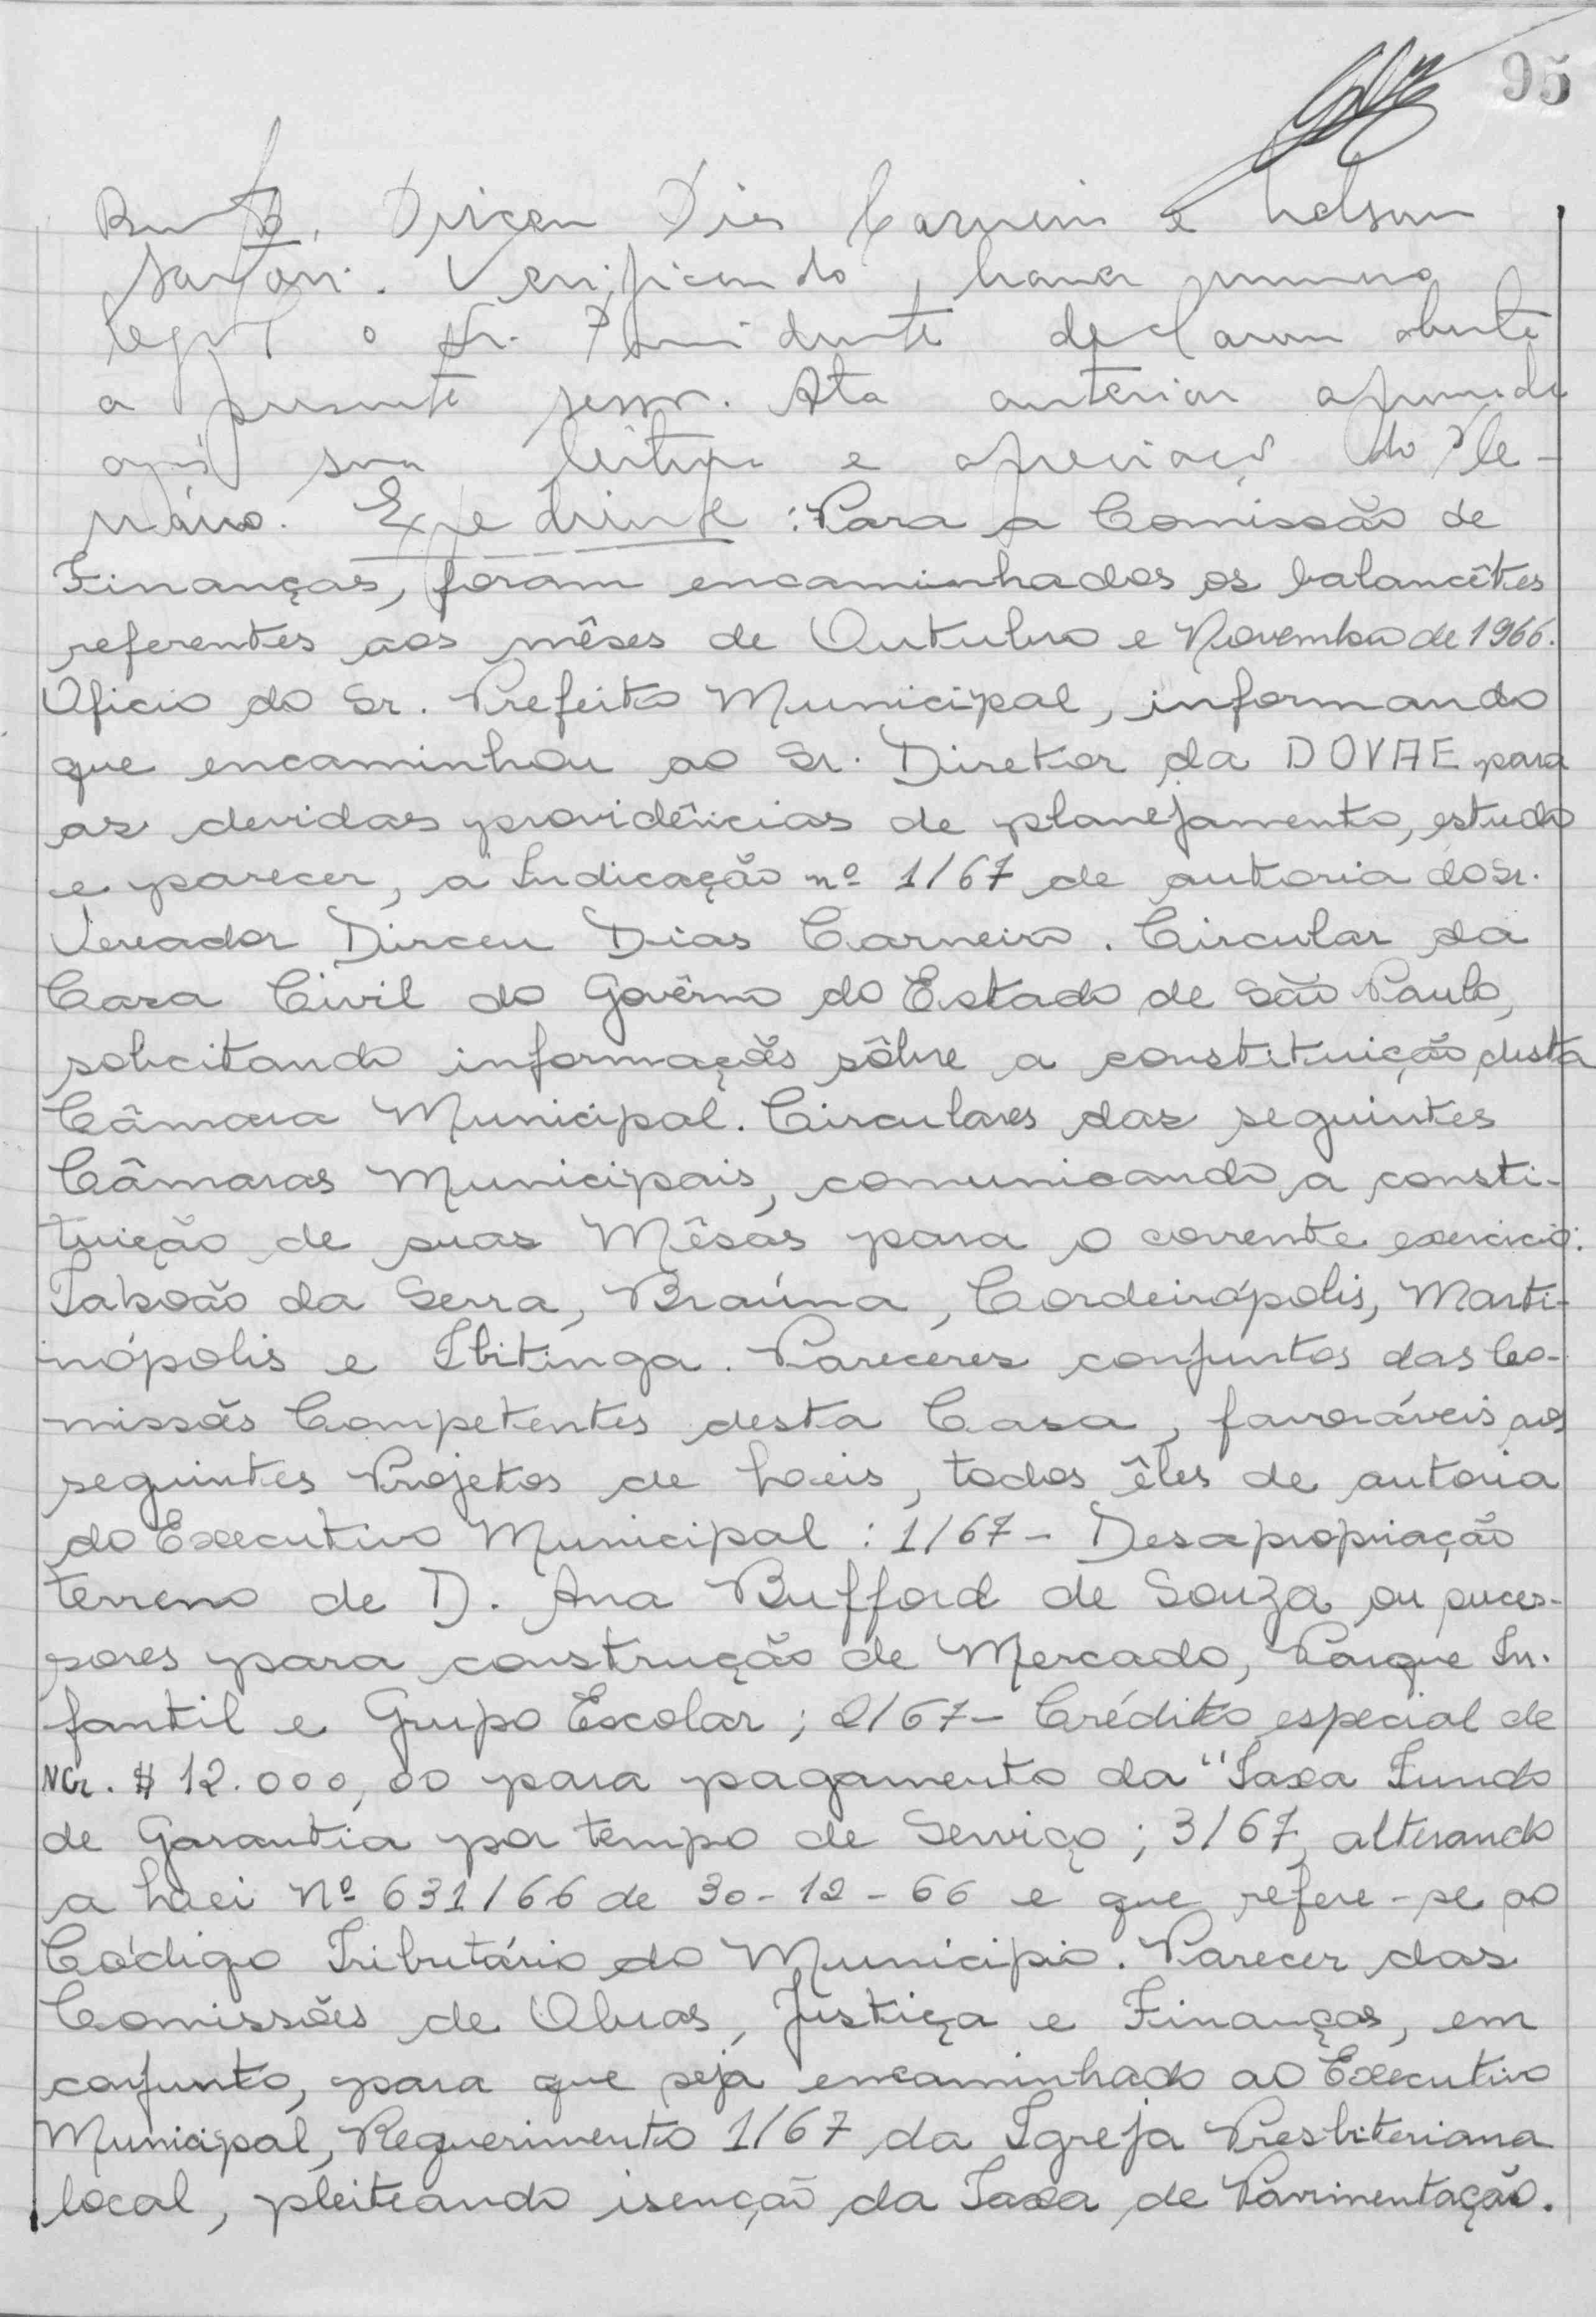 95
Dirceu Dias Carneiro e Nelson
Santori. Verificando haver numero
legal o Sr. Presidente declarou aberta
a presente sessão. Ata anterior aprovada
após sua leitura e apreciação do Ple-
nário. Expediente: Para a Comissão de
Finanças, foram encaminhados os balancêtes
referentes aos mêses de Outubro e Novembro de 1966.
Oficio do Sr. Prefeito Municipal, informando
que encaminhou ao Sr. Diretor da DOVAE para
as devidas providências de planejamento, estudo
e parecer, a Indicação nº 1/67 de autoria do Sr.
Vereador Dirceu Dias Carneiro. Circular da
Casa Civil do Govêrno do Estado de São Paulo,
solicitando informaçãos sôbre a constituição desta
Câmara Municipal. Circulares das seguintes
Câmaras Municipais, comunicando a consti-
tuição de suas Mêsas para o corrente exercicio:
Taboão da Serra, Braúna, Cordeirópolis, Marti-
nópolis e Ibitinga. Pareceres conjuntos das Co-
missãs Competentes desta Casa, favoráveis aos
seguintes Projetos de Leis, todos êles de autoria
do Executivo Municipal: 1/67 - Desapropriação
terreno de D. Ana Bufford de Souza ou suces-
sores para construção de Mercado, Parque In-
fantil e Grupo Escolar; 2/67 - Crédito especial de
NCr.$ 12.000,00 para pagamento da "Taxa Fundo
de Garantia por tempo de Serviço; 3/67, alterando
a Lei Nº 631/66 de 30-12-66 e que refere-se ao
Código Tributário do Municipio. Parecer das
Comissões de Obras, Justiça e Finanças, em
conjunto, para que seja encaminhado ao Executivo
Municipal, Requerimento 1/67 da Igreja Presbiteriana
local, pleiteando isenção da Taxa de Pavimentação.